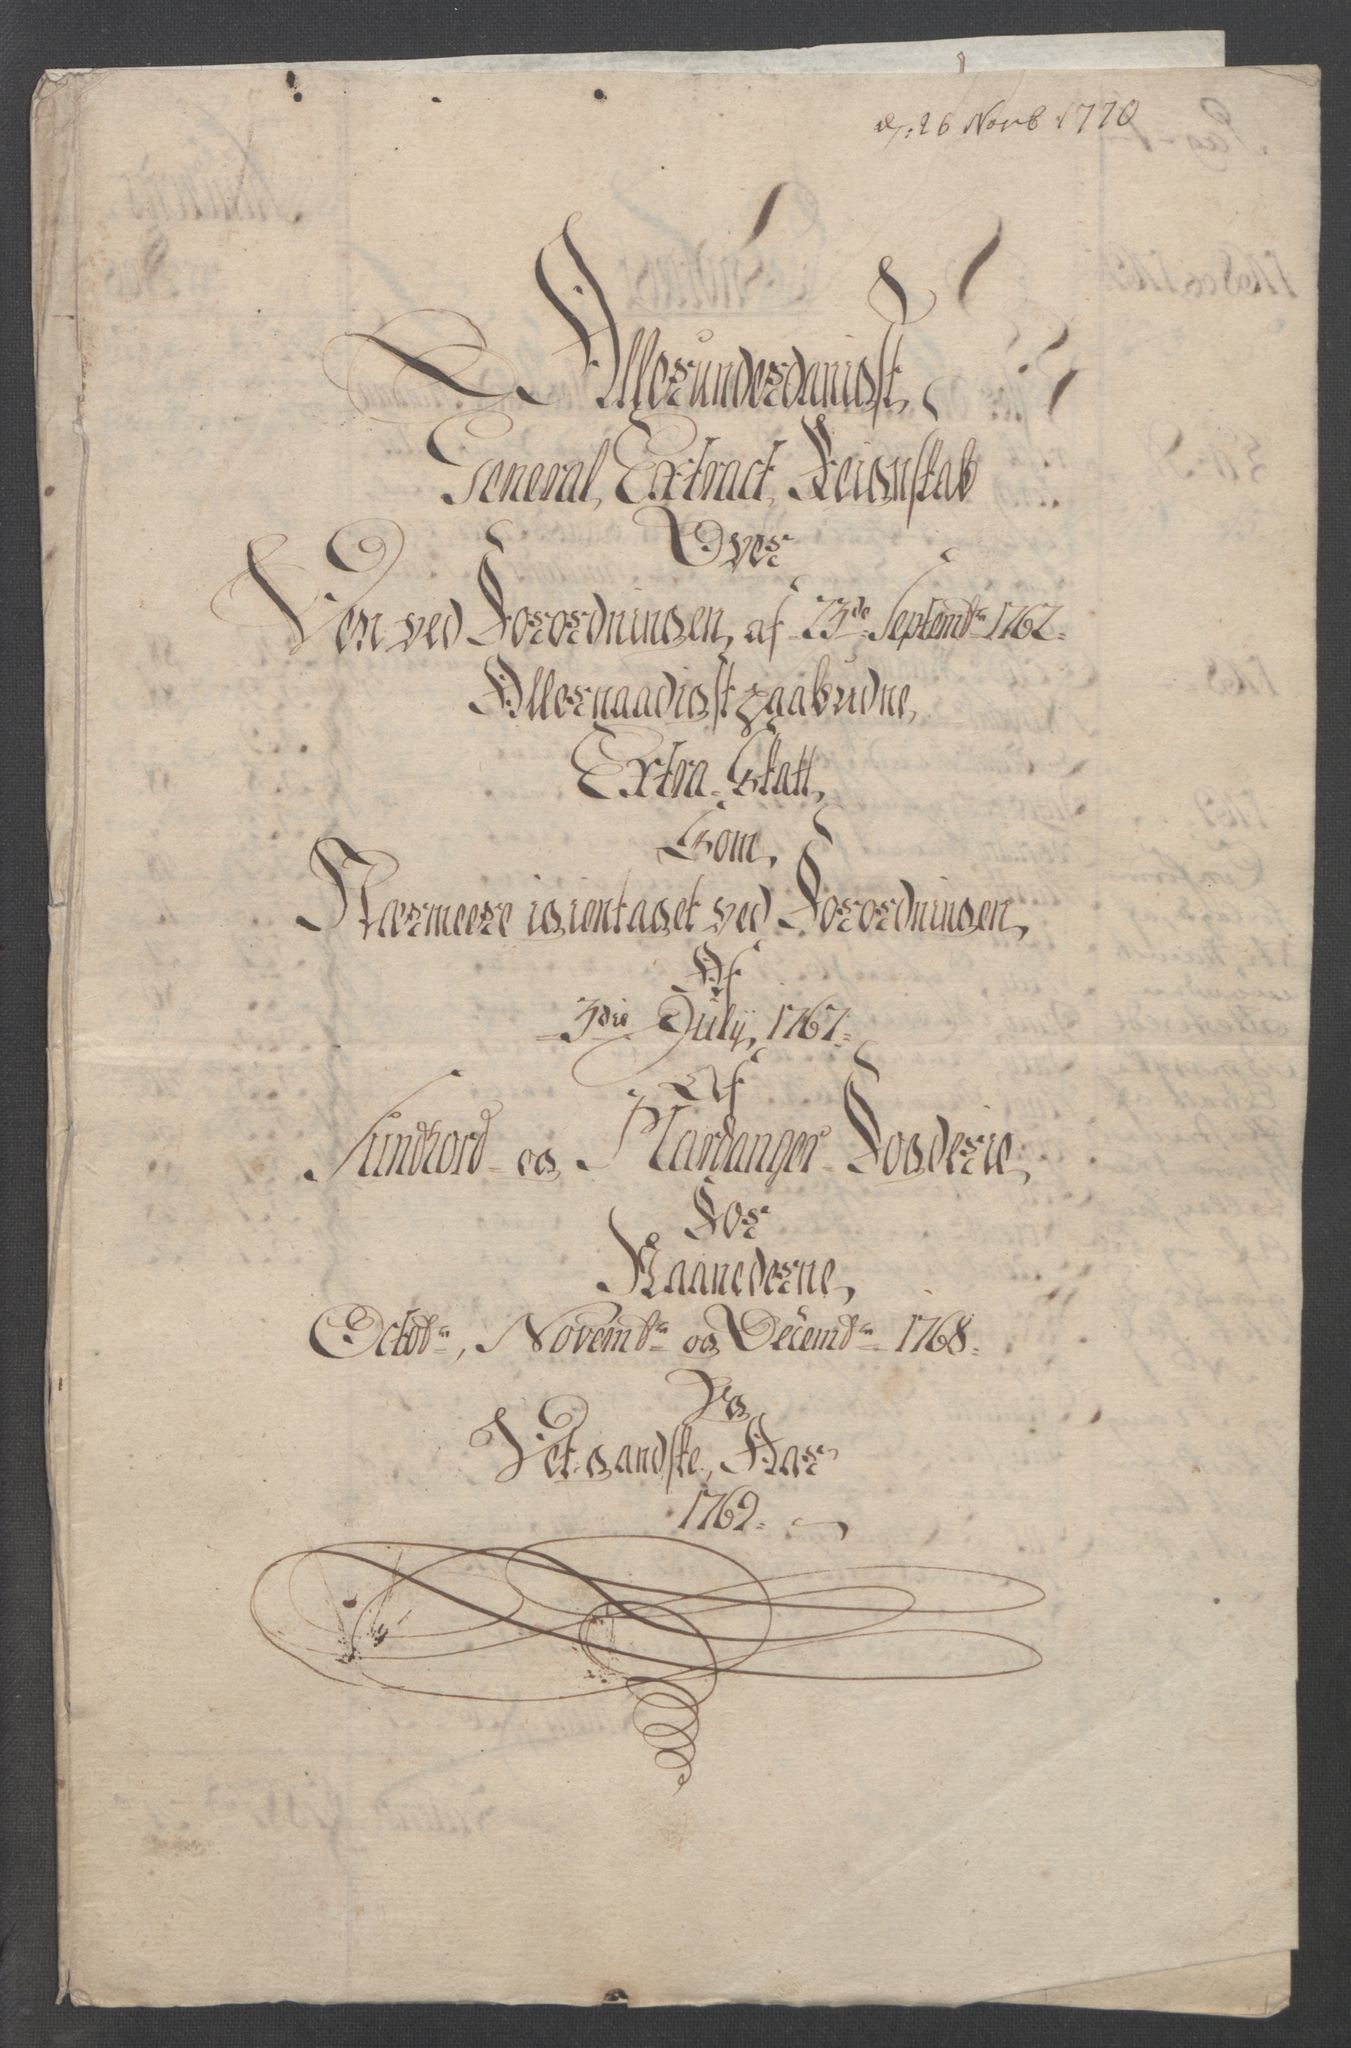 d: 26 Novb 1770
Allerunderdanigst
General Extract Reignskab
Over
Den ved Forordningen af 23de Septembr 1762
Allernaadigst paabudne
Extra Skatt
Som
Nærmeere igientaget ved Forordningen
Af
3die Julij 1767
Af
Sundhord og Hardanger Fogderie
For
Maanederne
Octobr, Novembr og Decembr 1768
Og
Det gandske Aar
1769